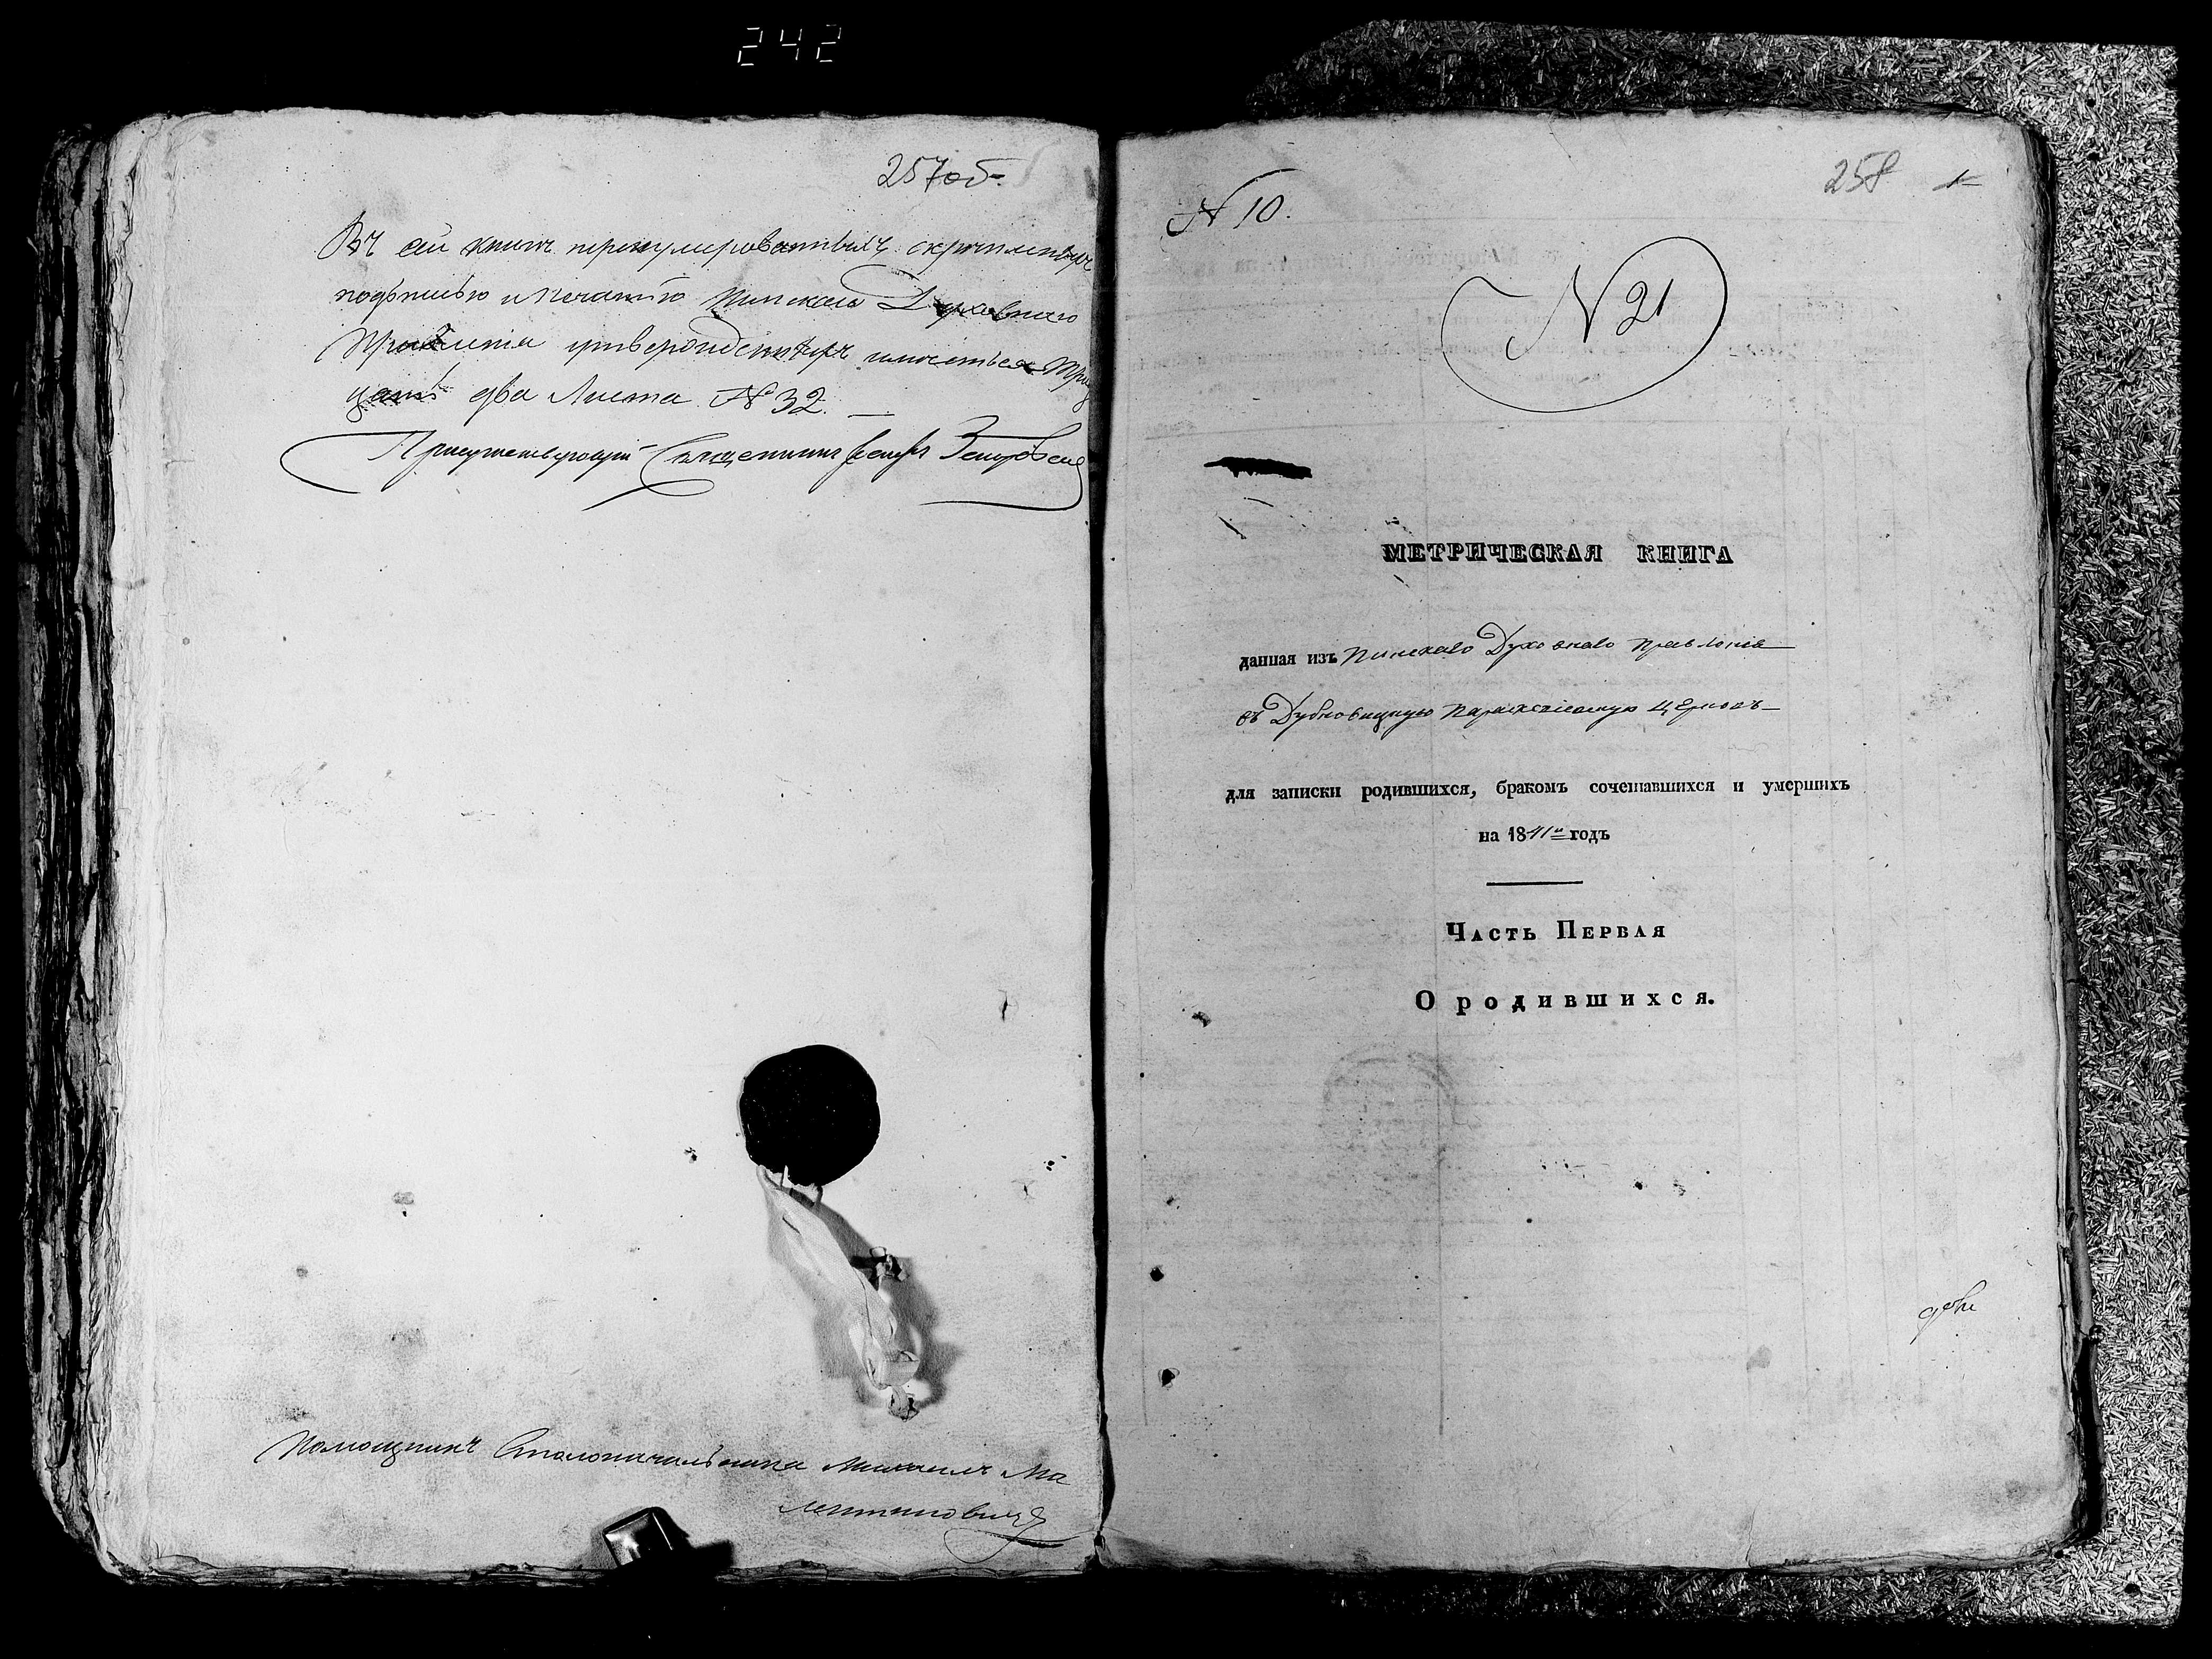 242
257об.
Въ сей книге пронумерованныхъ скрепленныхъ
подписью и печатью Пинскаго Духовнаго
Правленія утвержденныхъ имѣеться трид
цать два Листа № 32.
Присутствующій Священникъ
Помощникъ Столоначальника Михаилъ Ма
258
№ 10.
№ 21
МЕТРИЧЕСКАЯ КНИГА
данная изъ Пинскаго Духовнаго Правленія
въ Дубновицкую Параскевіевскую Церковь
для записки родившихся, бракомъ сочетавшихся и умершихъ
на 1841й годъ
Часть Первая
О родившихся.